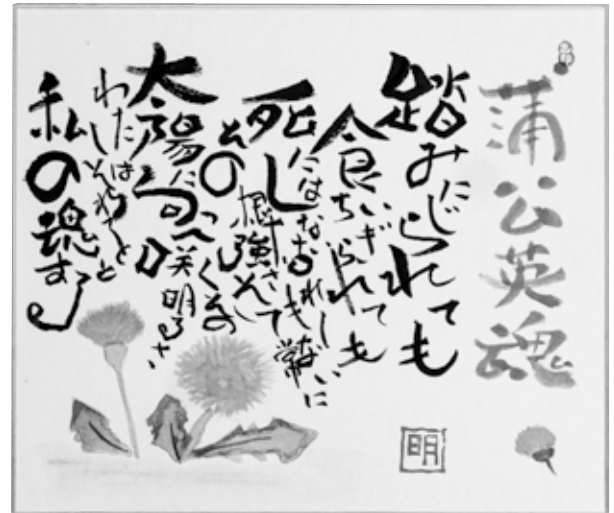 蒲公英魂
踏みにじられても
食いちぎられても
死にはしない
枯れもしない
その根強さ
そして常に
太陽に向って
咲くその明るさ
わたしはそれを
私の魂とする
明